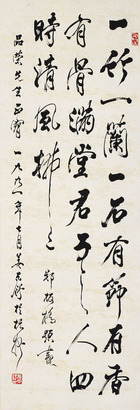 一竹一蘭一石有節有香
有骨滿堂君子之人四
時清風拂之 鄭板橋題畫
品榮先生正腕 一九九一年七月